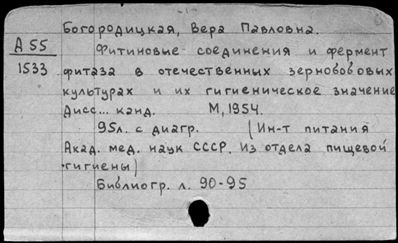 Богородицкая, Вера Павловна.
А 55
1533
Фитиновые соединения и фермент
фитаза в отечественных зернобобовых
культурах и их гигиеническое значение
Дисс... канд. М, 1954.
95л. с диагр. (Ин-т питания
Акад. мед. наук СССР. Из отдела пищевой
гигиены)
Библиогр. л. 90-95